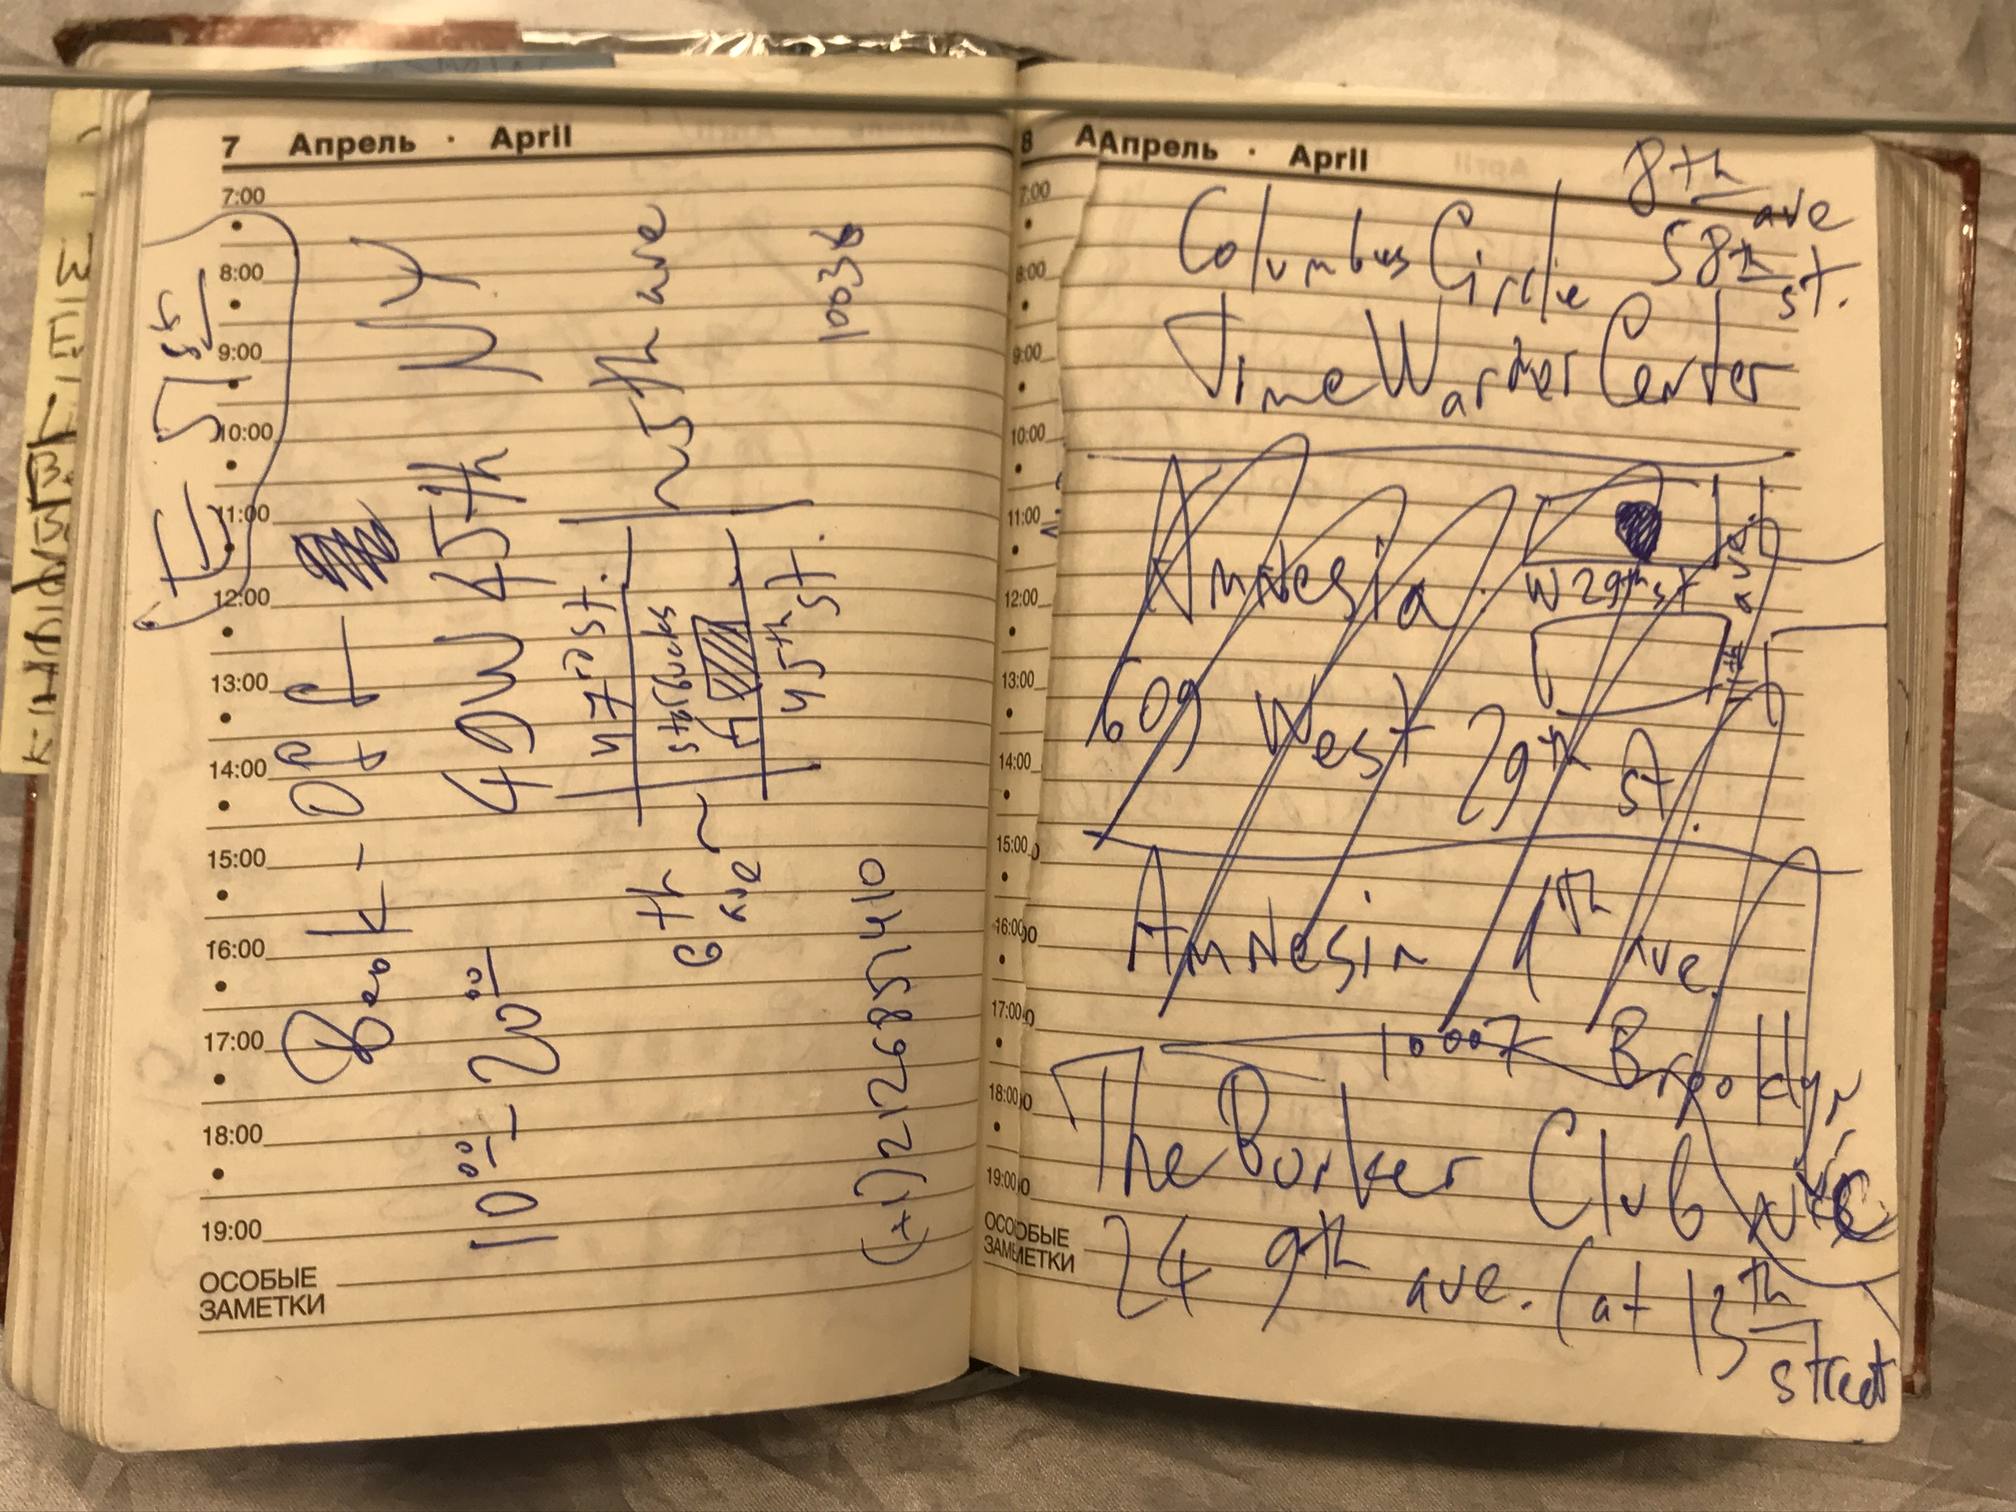 7 Апрель · April
7:00
8:00
9:00
10:00
11:00
12:00
13:00
14:00
15:00
16:00
17:00
18:00
19:00
ОСОБЫЕ
ЗАМЕТКИ
E 51st
Book-off
49W 45th NY
10 00 - 20 00
47rd st.
starbucks
45th st.
6th ave
5th ave
10036
(+1)2126851410
8 Апрель · April
7:00
8:00
9:00
10:00
11:00
12:00
13:00
14:00
15:00
16:00
17:00
18:00
19:00
ОСОБЫЕ
ЗАМЕТКИ
8th ave
58th st.
Columbus Circle
Time Warner Center
Amnesia
W 29th st
11th ave.
609 West 29th st.
Amnesia 1th ave.
10007 Brooklyn
The Bunker Club
24 9th ave. (at 13th
street